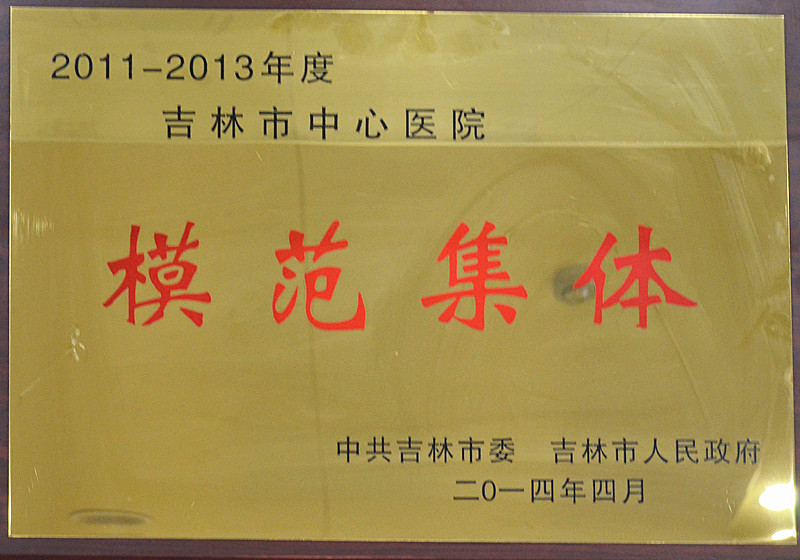 2011-2013年度
吉林市中心医院
模范集体
中共吉林市委 吉林市人民政府
二0一四年四月